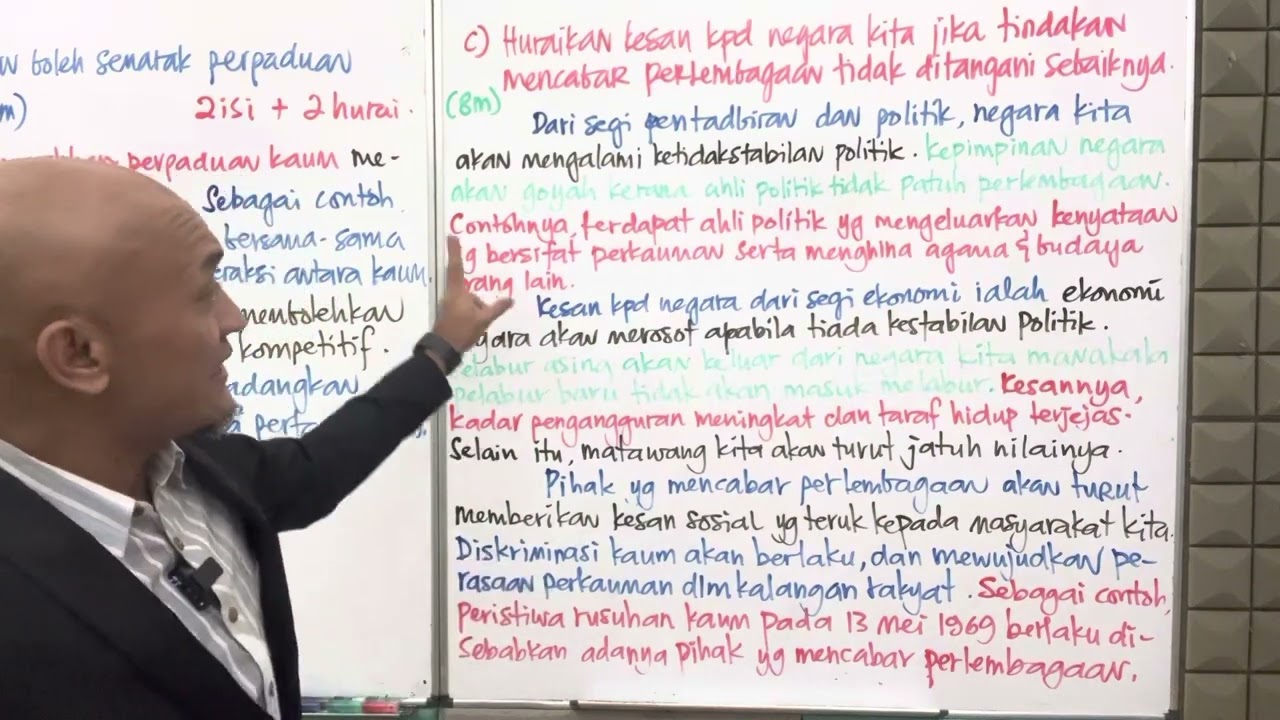 boleh semarak perpaduan
m)
2 isi + 2 hurai.
perpaduan kaum me-
Sebagai contoh
bersama-sama
eraksi antara kaum.
membolehkan
kompetitif.
adangkan
c) Huraikan kesan kpd negara kita jika tindakan
mencabar perlembagaan tidak ditangani sebaiknya.
(8m)
Dari segi pentadbiran dan politik, negara kita
akan mengalami ketidakstabilan politik. Kepimpinan negara
akan goyah kerana ahli politik tidak patuh perlembagaan.
Contohnya, terdapat ahli politik yg mengeluarkan kenyataan
g bersifat perkauman serta menghina agama & budaya
rang lain.
Kesan kpd negara dari segi ekonomi ialah ekonomi
gara akan merosot apabila tiada kestabilan politik.
elabur asing akan keluar dari negara kita manakala
pelabur baru tidak akan masuk melabur. Kesannya,
kadar pengangguran meningkat dan taraf hidup terjejas.
Selain itu, matawang kita akan turut jatuh nilainya.
Pihak yg mencabar perlembagaan akan turut
memberikan kesan sosial yg teruk kepada masyarakat kita.
Diskriminasi kaum akan berlaku, dan mewujudkan pe-
rasaan perkauman dlm kalangan rakyat. Sebagai contoh,
peristiwa rusuhan kaum pada 13 mei 1969 berlaku di-
sebabkan adanya pihak yg mencabar perlembagaan.